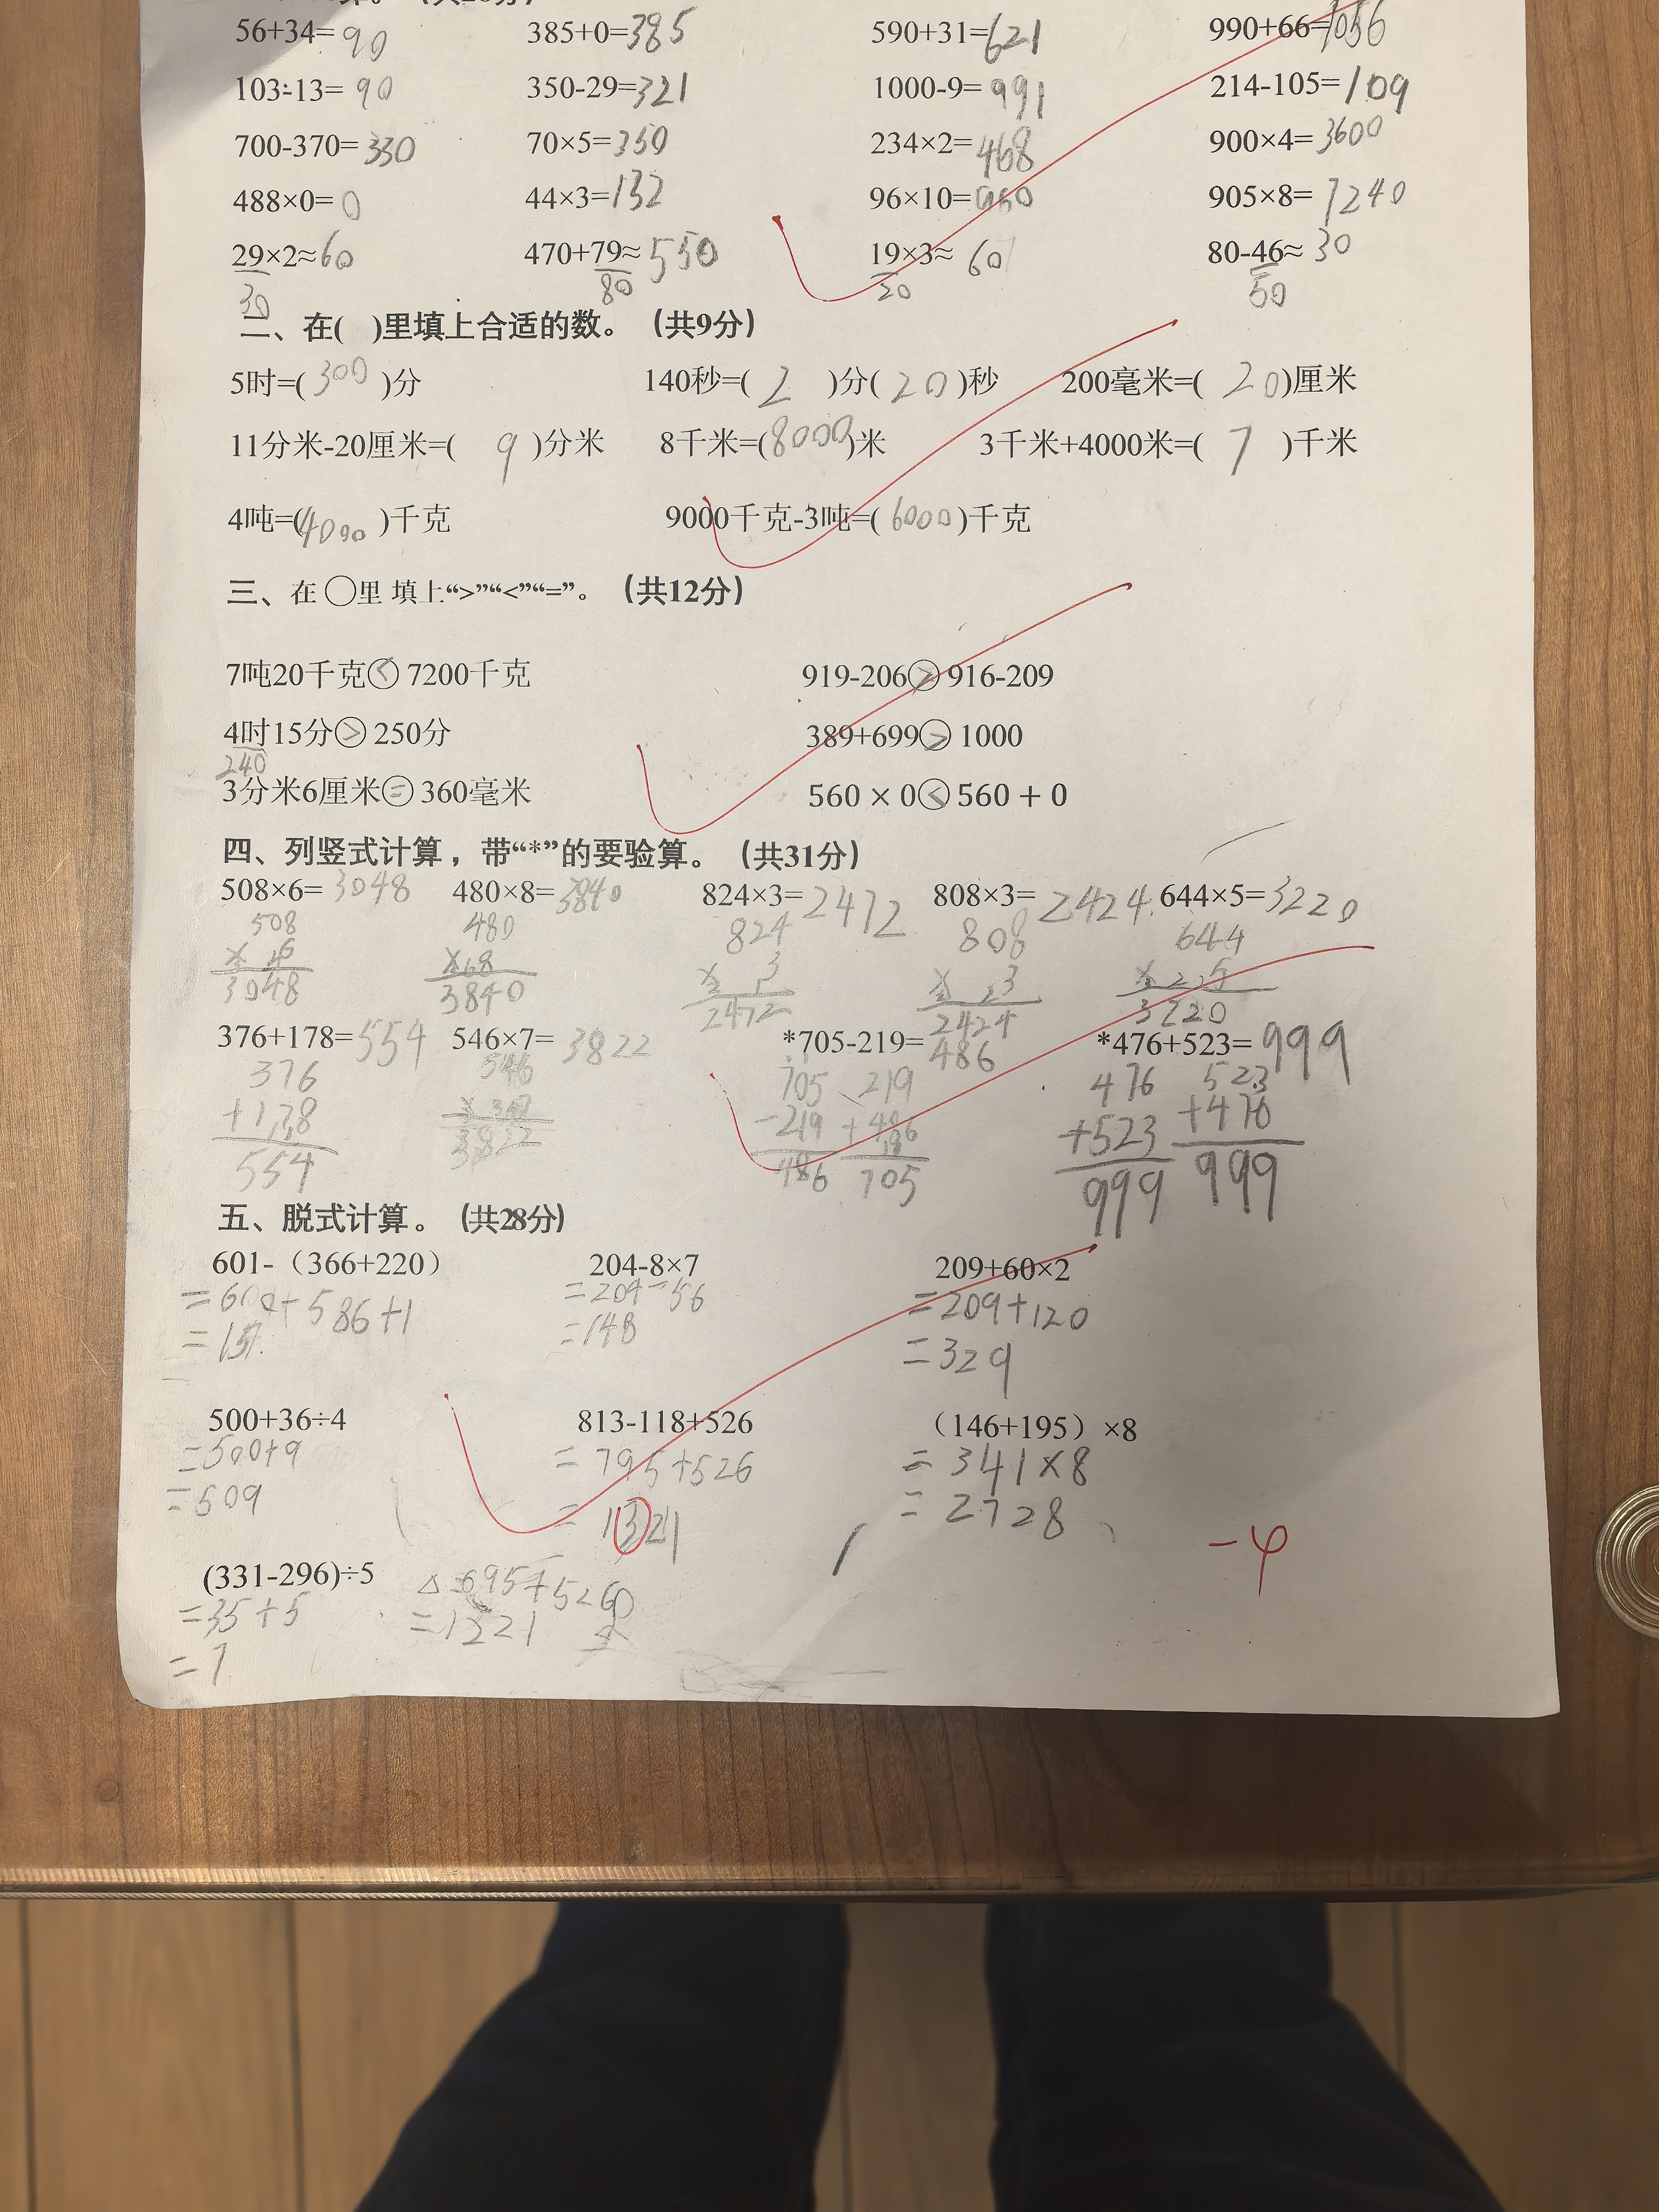 56+34=90 385+0=385 590+31=621 990+66=1056
103-13=90 350-29=321 1000-9=991 214-105=109
700-370=330 70×5=350 234×2=468 900×4=3600
488×0=0 44×3=132 96×10=960 905×8=7240
29×2≈60 470+79≈550 19×3≈60 80-46≈30
30 80 20 50
二、在( )里填上合适的数。(共9分)
5时=(300)分 140秒=(2)分(20)秒 200毫米=(20)厘米
11分米-20厘米=(9)分米 8千米=(8000)米 3千米+4000米=(7)千米
4吨=(4000)千克 9000千克-3吨=(6000)千克
三、在○里 填上“>”“<”“=”。(共12分)
7吨20千克<7200千克 919-206>916-209
4时15分>250分 389+699>1000
240
3分米6厘米=360毫米 560×0<560+0
四、列竖式计算，带“*”的要验算。(共31分)
508×6=3048 480×8=3840 824×3=2472 808×3=2424 644×5=3220
508 480 824 808 644
3048 3840 2472 2424 3220
376+178=554 546×7=3822 *705-219=486 *476+523=999
376 546 705 219 476 523
-219 +486 +523 +476
554 3822 486 705 999 999
五、脱式计算。(共28分)
601-（366+220） 204-8×7 209+60×2
=204-56 =209+120
=148 =329
500+36÷4 813-118+526 （146+195）×8
=500+9 =795+526 =341×8
=509 =1321 =2728
-4
(331-296)÷5
=35÷5
=7